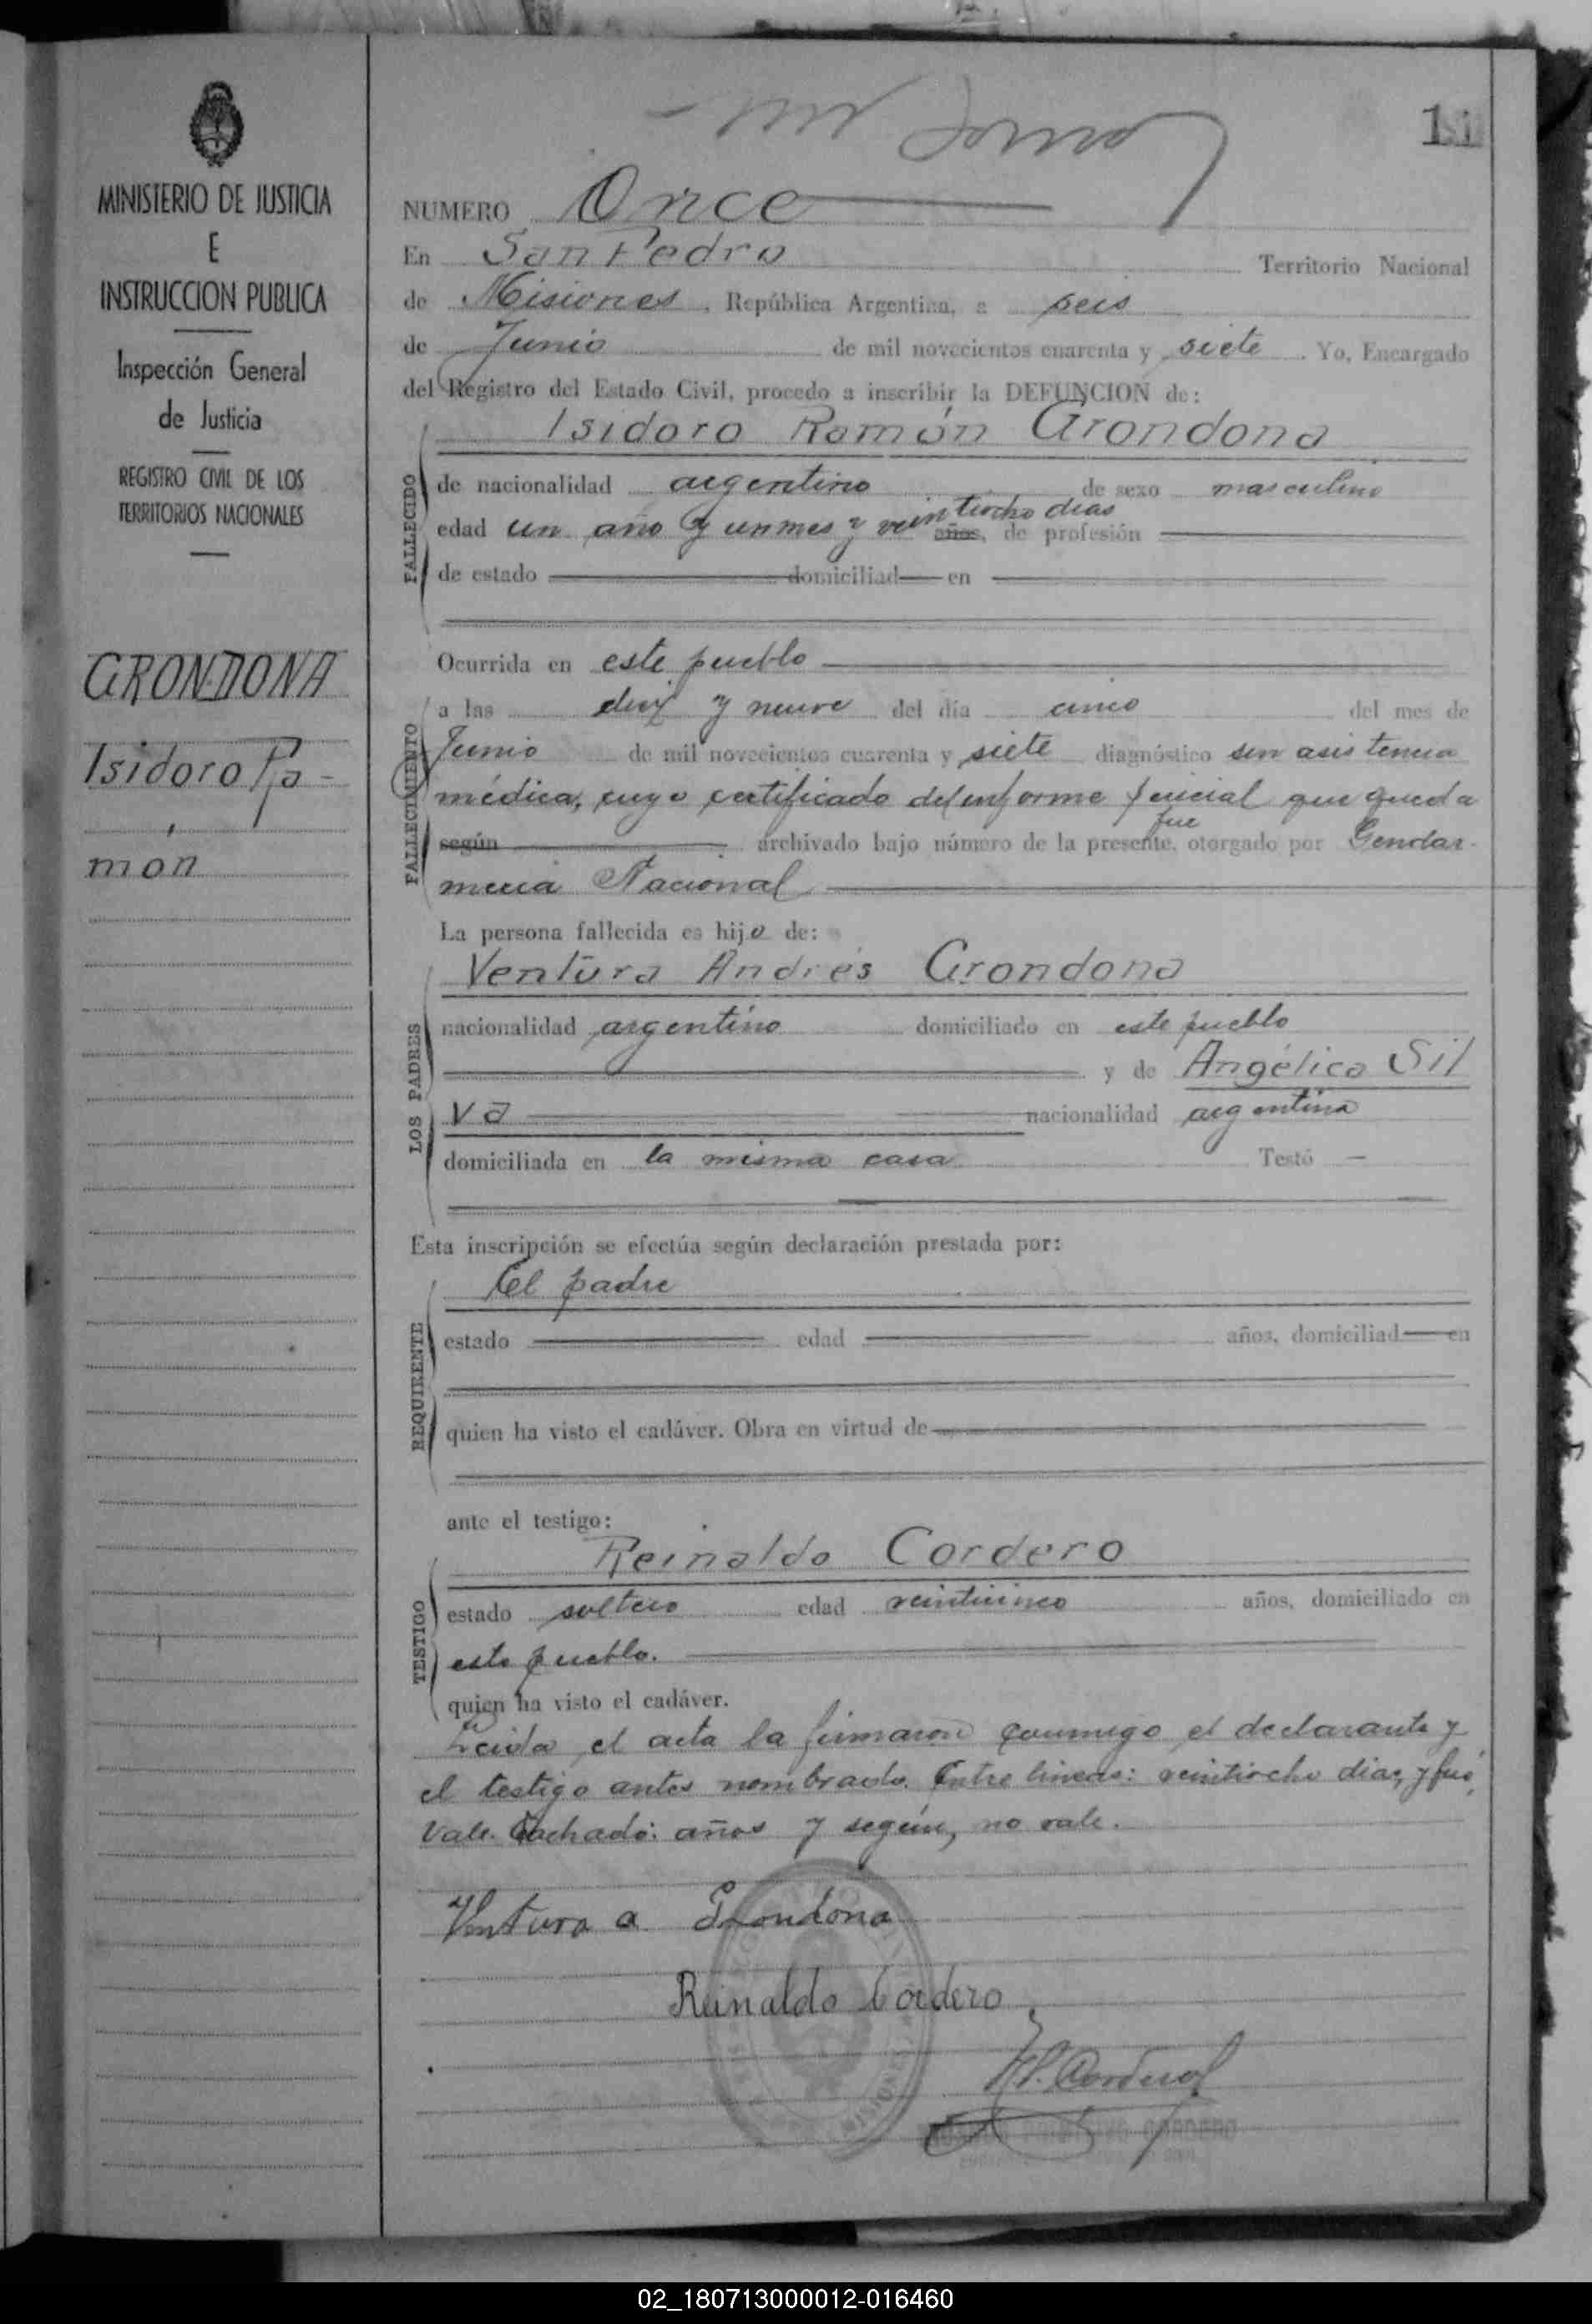 11
MINISTERIO DE JUSTICIA
E
INSTRUCCION PUBLICA
Inspección General
de Justicia
REGISTRO CIVIL DE LOS
TERRITORIOS NACIONALES
GRONDONA
Isidoro Ra-
món
NUMERO Once
En San Pedro Territorio Nacional
de Misiones, República Argentina, a seis
de Junio de mil novecientos cuarenta y siete. Yo, Encargado
del Registro del Estado Civil, procedo a inscribir la DEFUNCION de:
Isidoro Ramón Grondona
FALLECIDO
de nacionalidad argentino de sexo masculino
edad un año y un mes y veintiocho dias años, de profesión
de estado domiciliad en
Ocurrida en este pueblo
FALLECIMIENTO
a las diez y nueve del día cinco del mes de
Junio de mil novecientos cuarenta y siete diagnóstico sin asistencia
médica, cuyo certificado del informe pericial que queda
según archivado bajo número de la presente, fue otorgado por Gendar-
meria Nacional
La persona fallecida es hijo de:
LOS PADRES
Ventura Andrés Grondona
nacionalidad argentino domiciliado en este pueblo
y de Angélica Sil
va nacionalidad argentina
domiciliada en la misma casa Testó —
Esta inscripción se efectúa según declaración prestada por:
REQUIRENTE
El padre
estado edad años, domiciliad en
quien ha visto el cadáver. Obra en virtud de
ante el testigo:
TESTIGO
Reinaldo Cordero
estado soltero edad veinticinco años, domiciliado en
este pueblo.
quien ha visto el cadáver.
Leida el acta la firmaron conmigo el declarante y
el testigo antes nombrado. Entre lineas: veintiocho dias, y fué,
Vale. Tachado: años y según, no vale.
Ventura a Grondona
Reinaldo Cordero
MISIONES
CORDERO
02_180713000012-016460